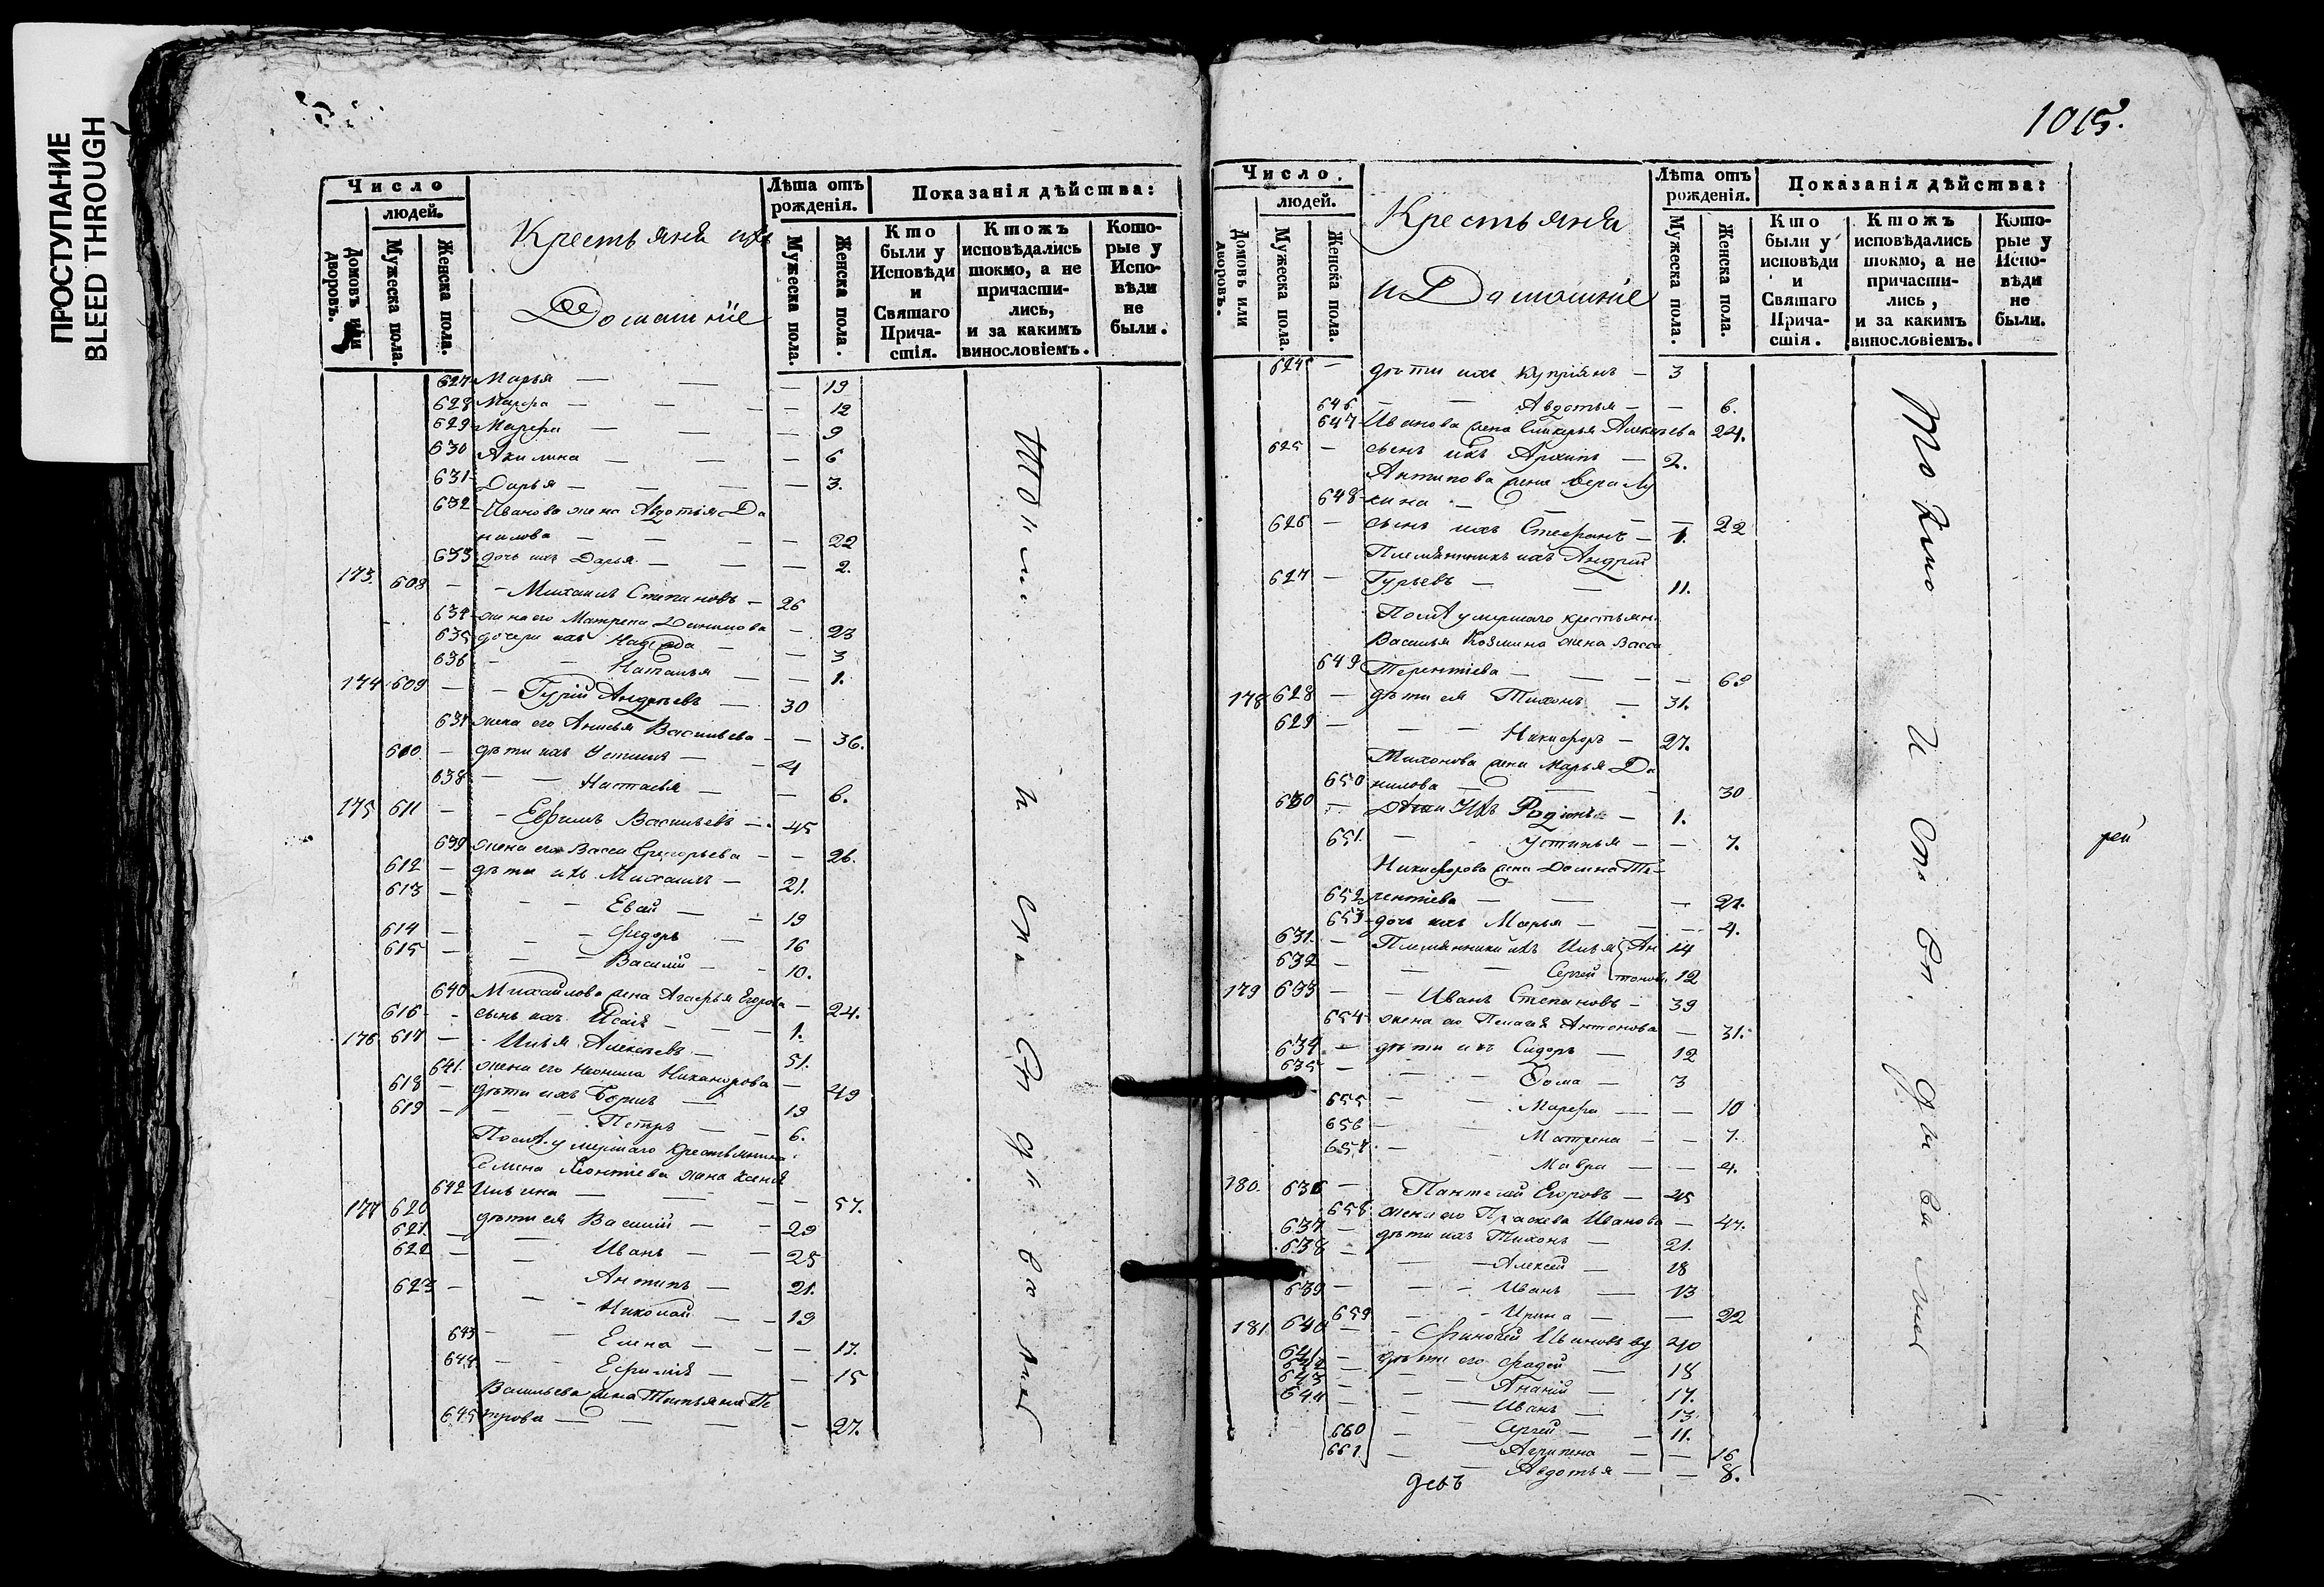 ПРОСТУПАНИЕ
BLEED THROUGH
Число
людей.
Домовъ или дворовъ.
Мужеска пола.
Женска пола.
Крестьяня ихъ
Домашніе
Лѣта отъ рожденія.
Мужеска пола.
Женска пола.
Показанія дѣйства:
Кто были у Исповѣди и Святаго Причастія.
Ктожъ исповѣдались токмо, а не причастились, и за какимъ винословіемъ.
Которые у Исповѣди не были.
627 Марья — — — 19
628 Марфа — — — 12
629 Марфа — — — 9
630 Акилина — — — 6
631 Дарья — — — 3.
632 Иванова жена Авдотья Да
нилова — — — 22
633 дочь ихъ Дарья — — — 2.
173. 608 — Михаилъ Степановъ — 26
634 жена его Матрена Данилова — 23
635 дочери ихъ Надежда — — 3
636 — — Наталья — — 1.
174 609 — Гурій Андреевъ — 30
637 жена его Анисья Васильева — — 36.
610 — дѣти ихъ Устинъ — 4
638 — — Настасья — — 6.
175 611 — Ефимъ Васильевъ — 45
639 жена его Васса Григорьева — — 26.
612 — дѣти ихъ Михаилъ — 21.
613 — — — — 19
614 — — Федоръ — 16
615 — — Василій — 10.
640 Михайлова жена Агафья Егорова — 24.
616 — сынъ ихъ Исаія — — 1.
176 617 — Илья Алексѣевъ — 51.
641. жена его Неонила Никанорова — 49
618 — дѣти ихъ Борисъ — 19
619 — — Петръ — — 6.
Послѣ умершаго крестьянина
Семена Леонтіева жена Ксенія
642 Ильина — — — 57.
177 620 дѣти ея Василій — — 29
621. — — Иванъ — — 25
622 — Антипъ — 21.
623 — — Николай — — 19
643 — — Елена — — — 17.
644 — — Ефимія — — 15
Васильева жена Татьяна Пе
645 трова — — — — 27.
1015.
Число.
людей.
Домовъ или дворовъ.
Мужеска пола.
Женска пола.
Крестьяня
и Домашніе
Лѣта отъ рожденія.
Мужеска пола.
Женска пола.
Показанія дѣйства:
Кто были у исповѣди и Святаго Причастія.
Ктожъ исповѣдались токмо, а не причастились, и за какимъ винословіемъ.
Которые у Исповѣди не были.
624 — дѣти ихъ Купріянъ — 3
646. — — Авдотья — — 6.
647 Иванова жена Гликерья Алексѣева 24.
625 — сынъ ихъ Архипъ — 2.
Антипова жена Вера Лу
648 кина — — — 22
626 — сынъ ихъ Стефанъ — 1.
Племянникъ ихъ Андрей
627 — Гурьевъ — — 11.
Послѣ умершаго крестьян.
Василья Козмина жена Васса
649 Терентіева — — — — 6
178 628 — дѣти ея Тихонъ — 31.
629 — — — Никифоръ — 27.
Тихонова жена Марья Да
650 нилова — — — 30
630 — Дѣти Ихъ Родіонъ — 1.
651. — — Устинья — — 7.
Никифорова жена Домна Те-
652 рентіева — — — 21.
653 дочь ихъ Марья — — — 4.
631. — Племянники ихъ Илья Ан 14
632 — — — Сергей тоновы 12
179 633 — — Иванъ Степановъ — 39
654 жена его Пелагія Антонова — 31.
634. — дѣти ихъ Сидоръ — 12
635 — — — Фома — 3
655 — — Марфа — — 10
656 — — Матрена — — 7.
657. — — Мавра — — 4.
180. 636 — Пантелей Егоровъ — 45
658 жена его Праскева Иванова — 47.
637 — дѣти ихъ Тихонъ — 21.
638 — — — Алексей — 18
639 — — — Иванъ — 13
659 — — Ирина — — 22
181 640 — — Ивановъ вд 40
641 — дѣти его Фадей — 18
642 — — — Ананій — 17.
643 — — — Иванъ — 13.
644 — — Сергей — — 11.
660 — Агрипена — — 16
661. — Авдотья — — 8.
рей